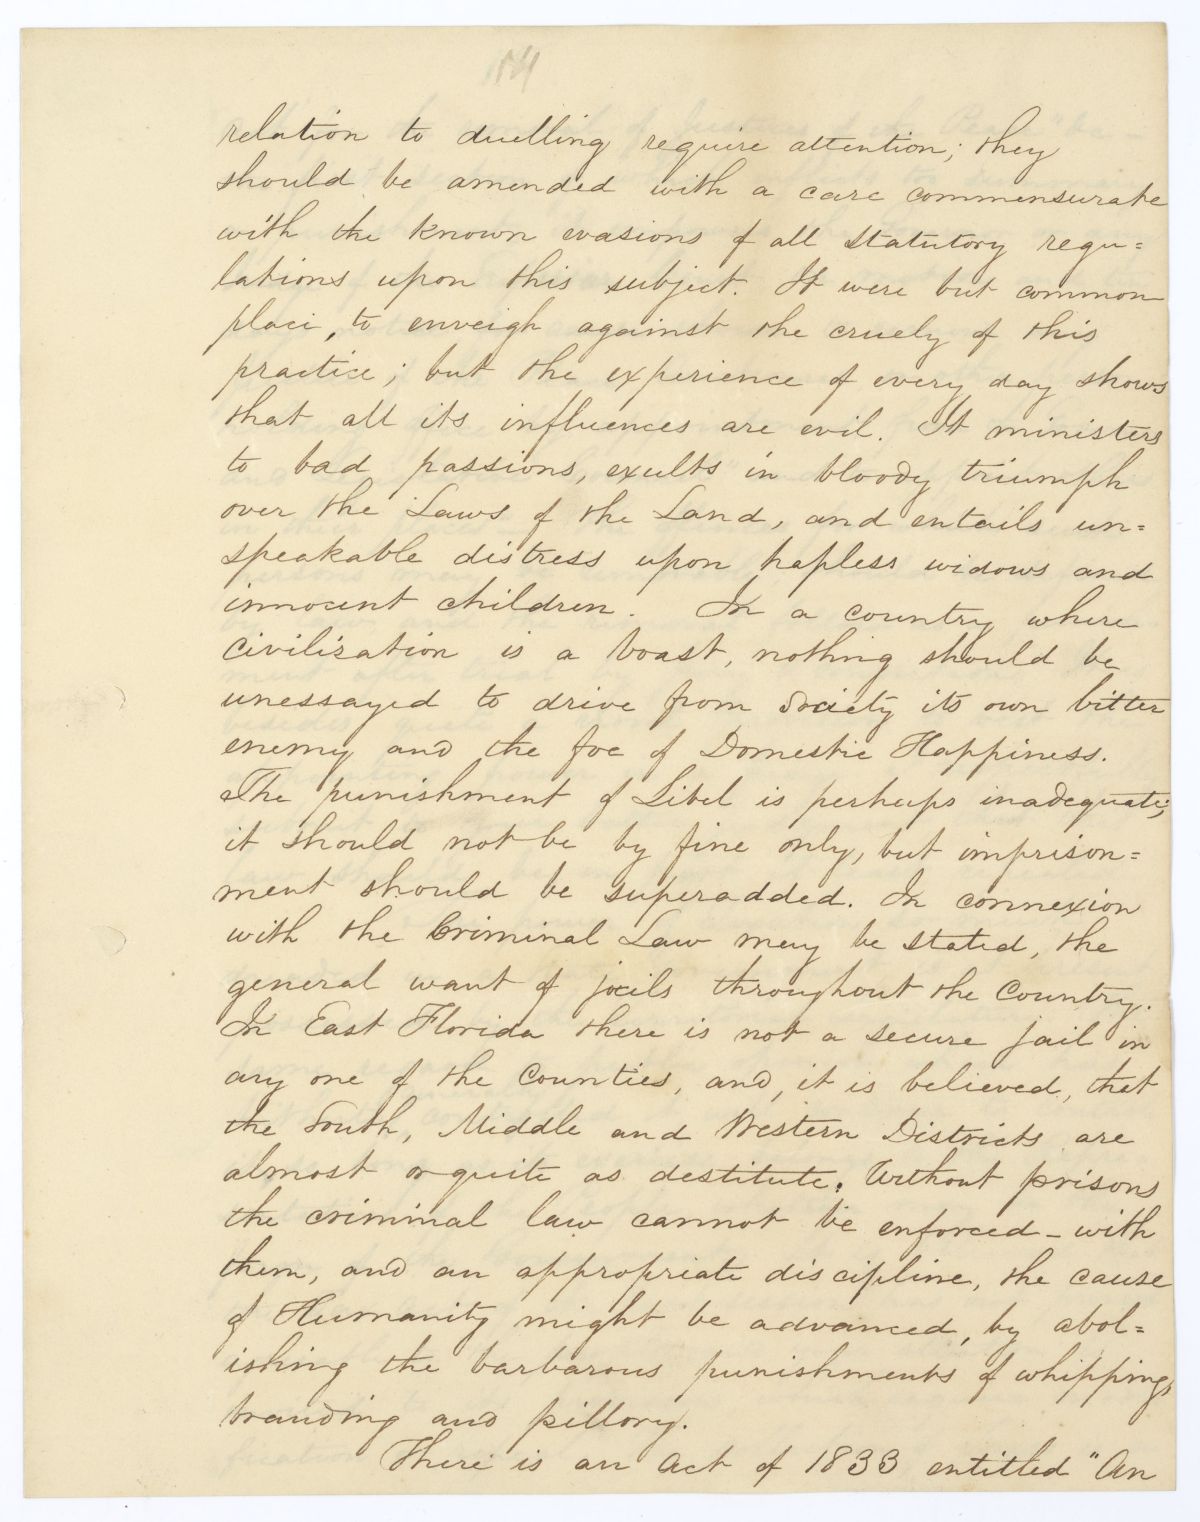 relation to duelling require attention; they
should be amended with a care commensurate
with the known evasions of all statutory regu=
lations upon this subject. It were but common
place, to enveigh against the cruely of this
practice; but the experience of every day shows
that all its influences are evil. It ministers
to bad passions, exults in bloody triumph
over the Laws of the Land, and entails un=
speakable distress upon hapless widows and
innocent children. In a country where
civilization is a boast, nothing should be
unessayed to drive from Society its own bitter
enemy and the foe of Domestic Happiness.
The punishment of Libel is perhaps inadequate;
it should not be by fine only, but imprison=
ment should be superadded. In connexion
with the Criminal Law may be stated, the
general want of jails throughout the Country.
In East Florida there is not a secure jail in
any one of the Counties, and, it is believed, that
the South, Middle and Western Districts are
almost or quite as destitute. Without prisons
the criminal law cannot be enforced - with
them, and an appropriate discipline, the cause
of Humanity might be advanced, by abol=
ishing the barbarous punishments of whipping,
branding and pillory.
There is an act of 1833 entitled "An